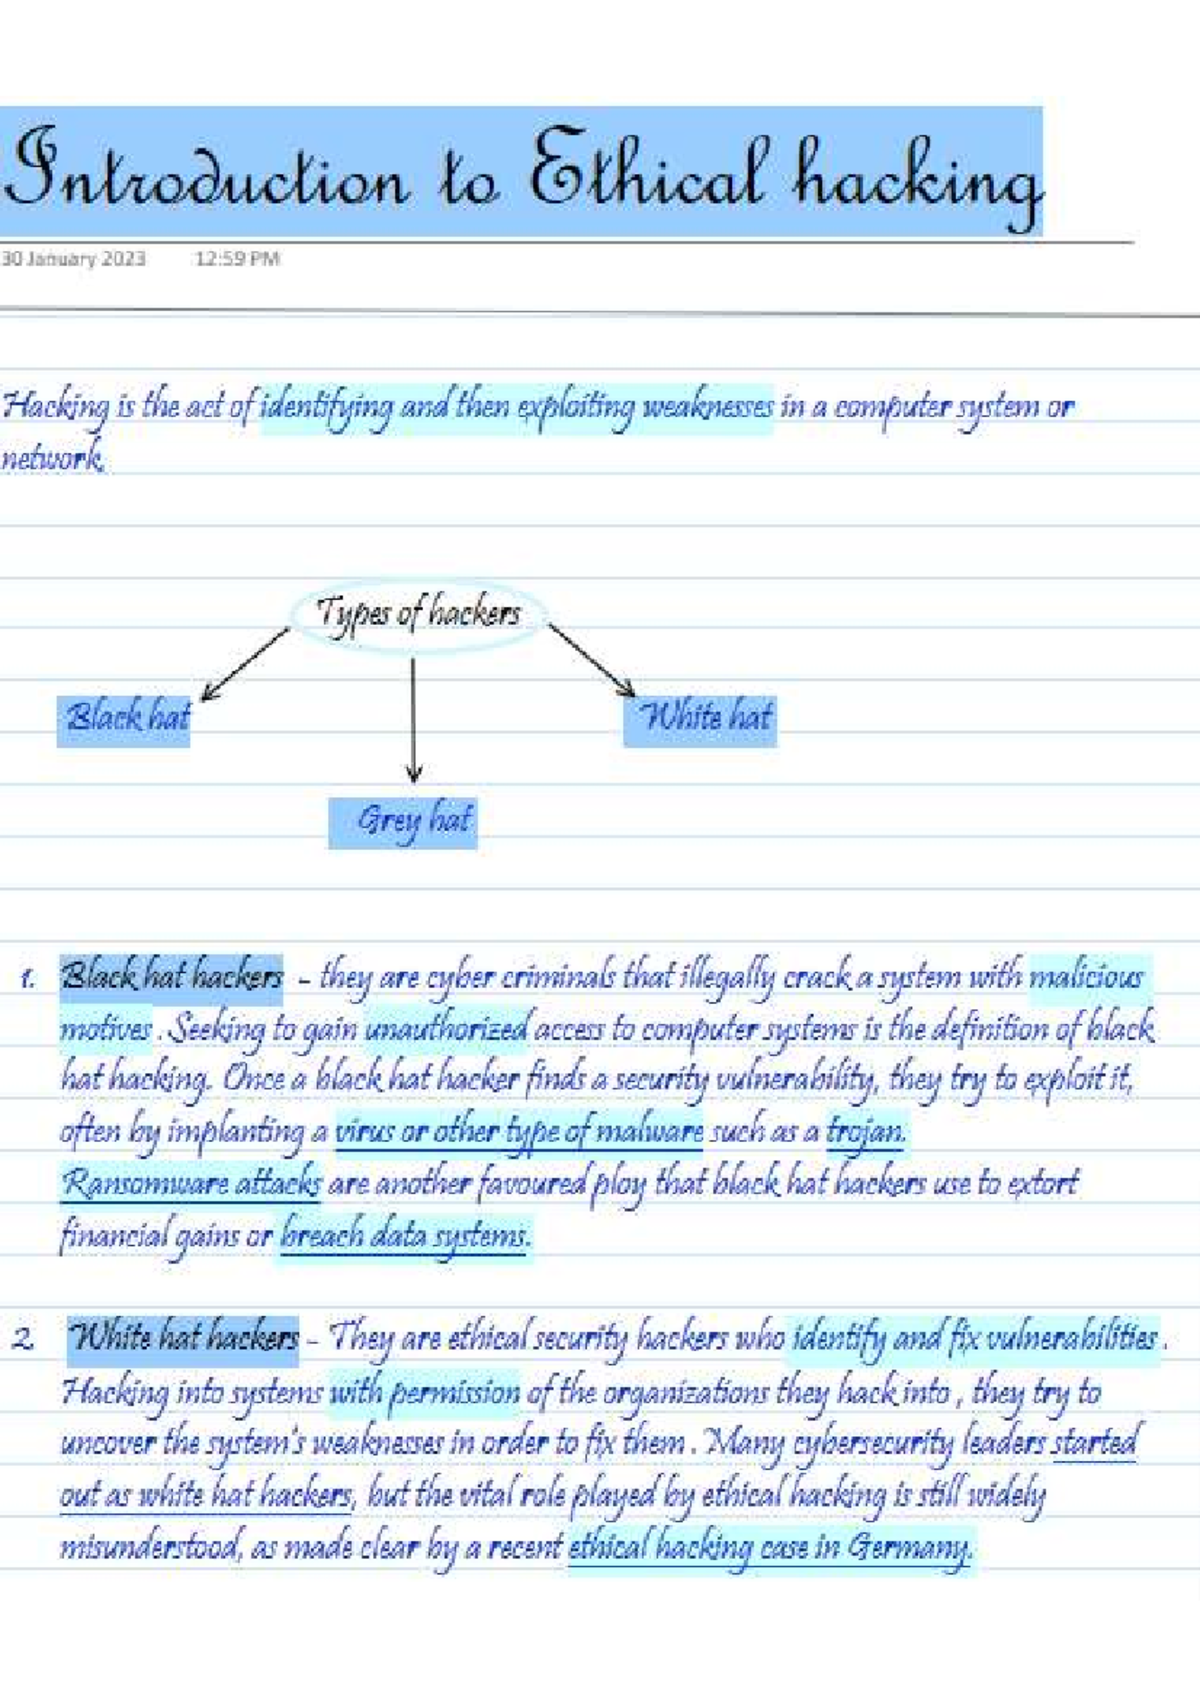 Introduction to Ethical hacking
30 January 2023 12:59 PM
Hacking is the act of identifying and then exploiting weaknesses in a computer system or
network.
Types of hackers
Black hat
White hat
Grey hat
1. Black hat hackers - they are cyber criminals that illegally crack a system with malicious
motives . Seeking to gain unauthorized access to computer systems is the definition of black
hat hacking. Once a black hat hacker finds a security vulnerability, they try to exploit it,
often by implanting a virus or other type of malware such as a trojan.
Ransomware attacks are another favoured ploy that black hat hackers use to extort
financial gains or breach data systems.
2. White hat hackers - They are ethical security hackers who identify and fix vulnerabilities .
Hacking into systems with permission of the organizations they hack into , they try to
uncover the system's weaknesses in order to fix them . Many cybersecurity leaders started
out as white hat hackers, but the vital role played by ethical hacking is still widely
misunderstood, as made clear by a recent ethical hacking case in Germany.